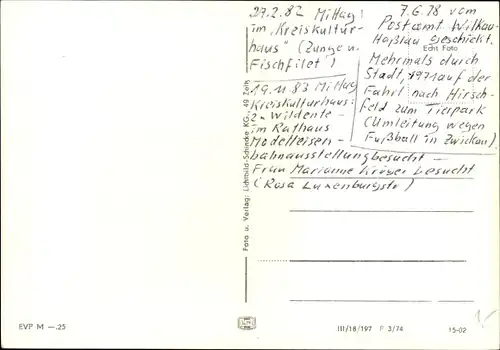 27.2.82 Mittag!
im "Kreiskultur-
haus" (Zunge u.
Fischfilet!)
19.11.83 Mittag
Kreiskulturhaus:
2x Wildente -
im Rathaus
Modelleisen-
bahnausstellung besucht -
Frau Marianne Kröber besucht
(Rosa Luxenburgstr)
7.6.78 vom
Postamt Wilkau-
Haßlau geschickt.
Echt Foto
Mehrmals durch
Stadt, 1971 auf der
Fahrt nach Hirsch-
feld zum Tierpark
(Umleitung wegen
Fußball in Zwickau).
Foto u. Verlag: Lichtbild-Schincke KG., 49 Zeitz
EVP M —.25
III/18/197 P 3/74
15-02